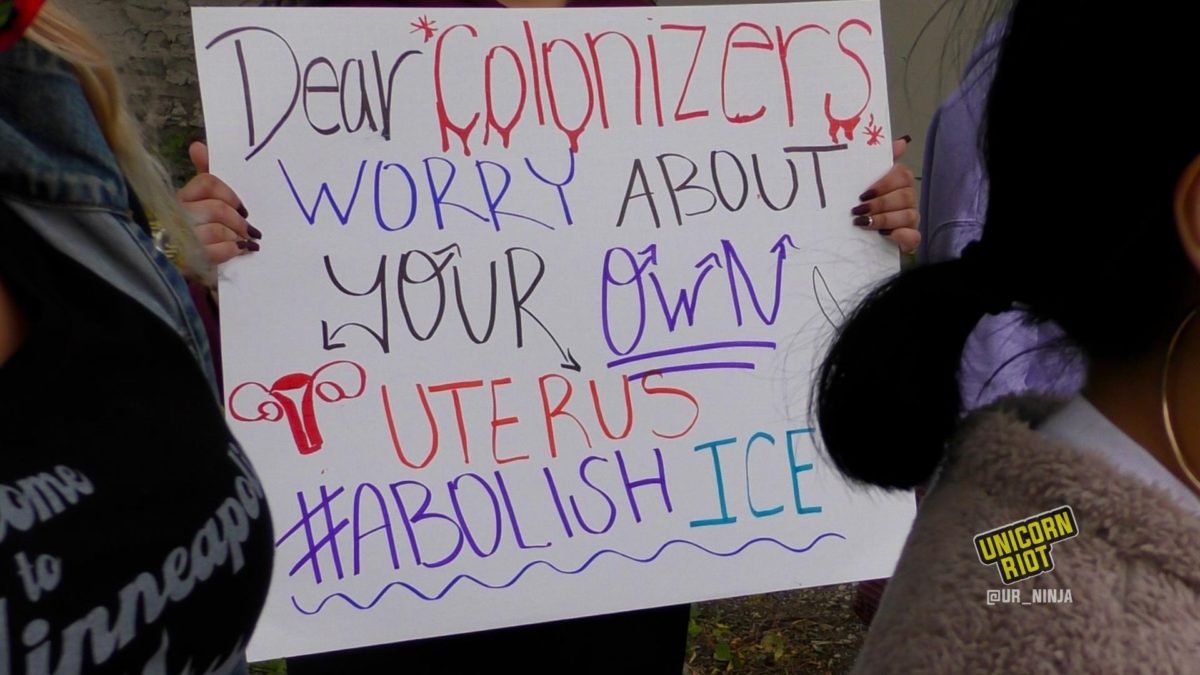 Dear *Colonizers*
WORRY ABOUT
YOUR OWN
UTERUS
#ABOLISH ICE
to
UNICORN
RIOT
@UR_NINJA